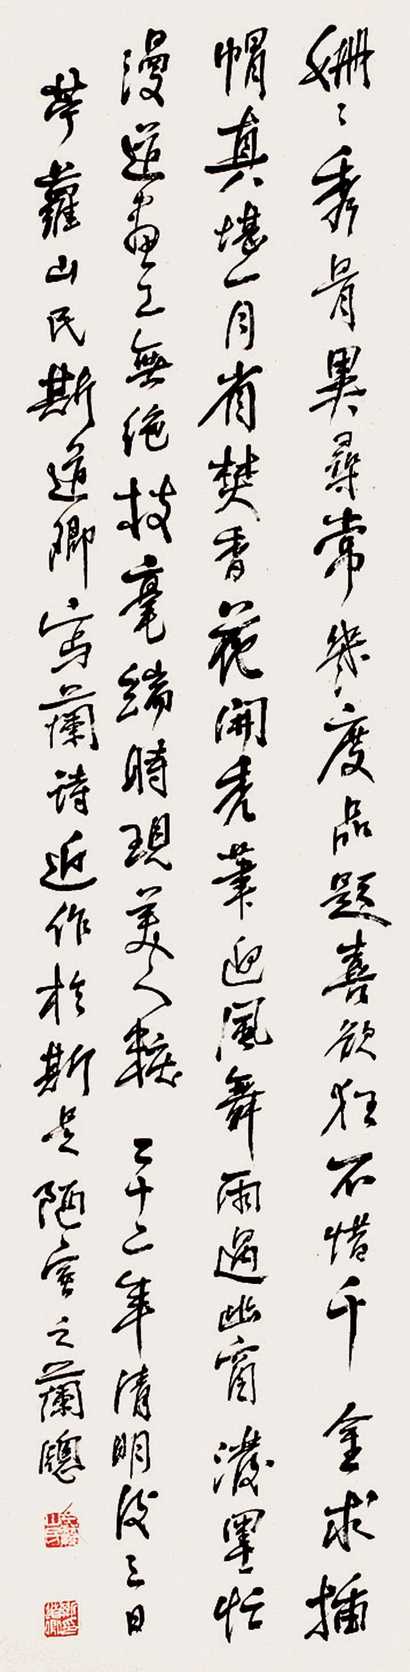 姍〻秀骨異尋常幾度品題喜欲狂不惜千金求插
帽真堪一月省焚香花開禿筆迎風舞雨過幽窗潑墨忙
漫道畫工無絕技毫端時現美人粧 二十二年清明後三日
苧蘿山民斯道卿寫蘭詩近作於斯是陋室之蘭牕